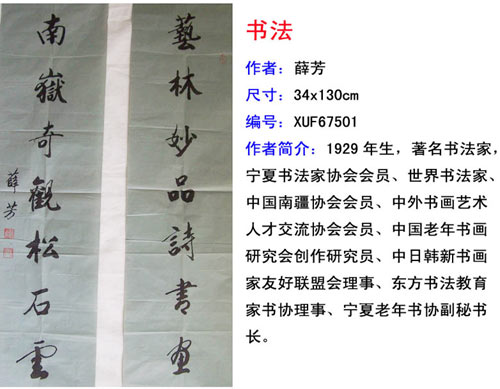 藝林妙品詩書畫
南嶽奇觀松石雲
薛芳
书法
作者：薛芳
尺寸：34x130cm
编号：XUF67501
作者简介：1929年生，著名书法家，
宁夏书法家协会会员、世界书法家、
中国南疆协会会员、中外书画艺术
人才交流协会会员、中国老年书画
研究会创作研究员、中日韩新书画
家友好联盟会理事、东方书法教育
家书协理事、宁夏老年书协副秘书
长。